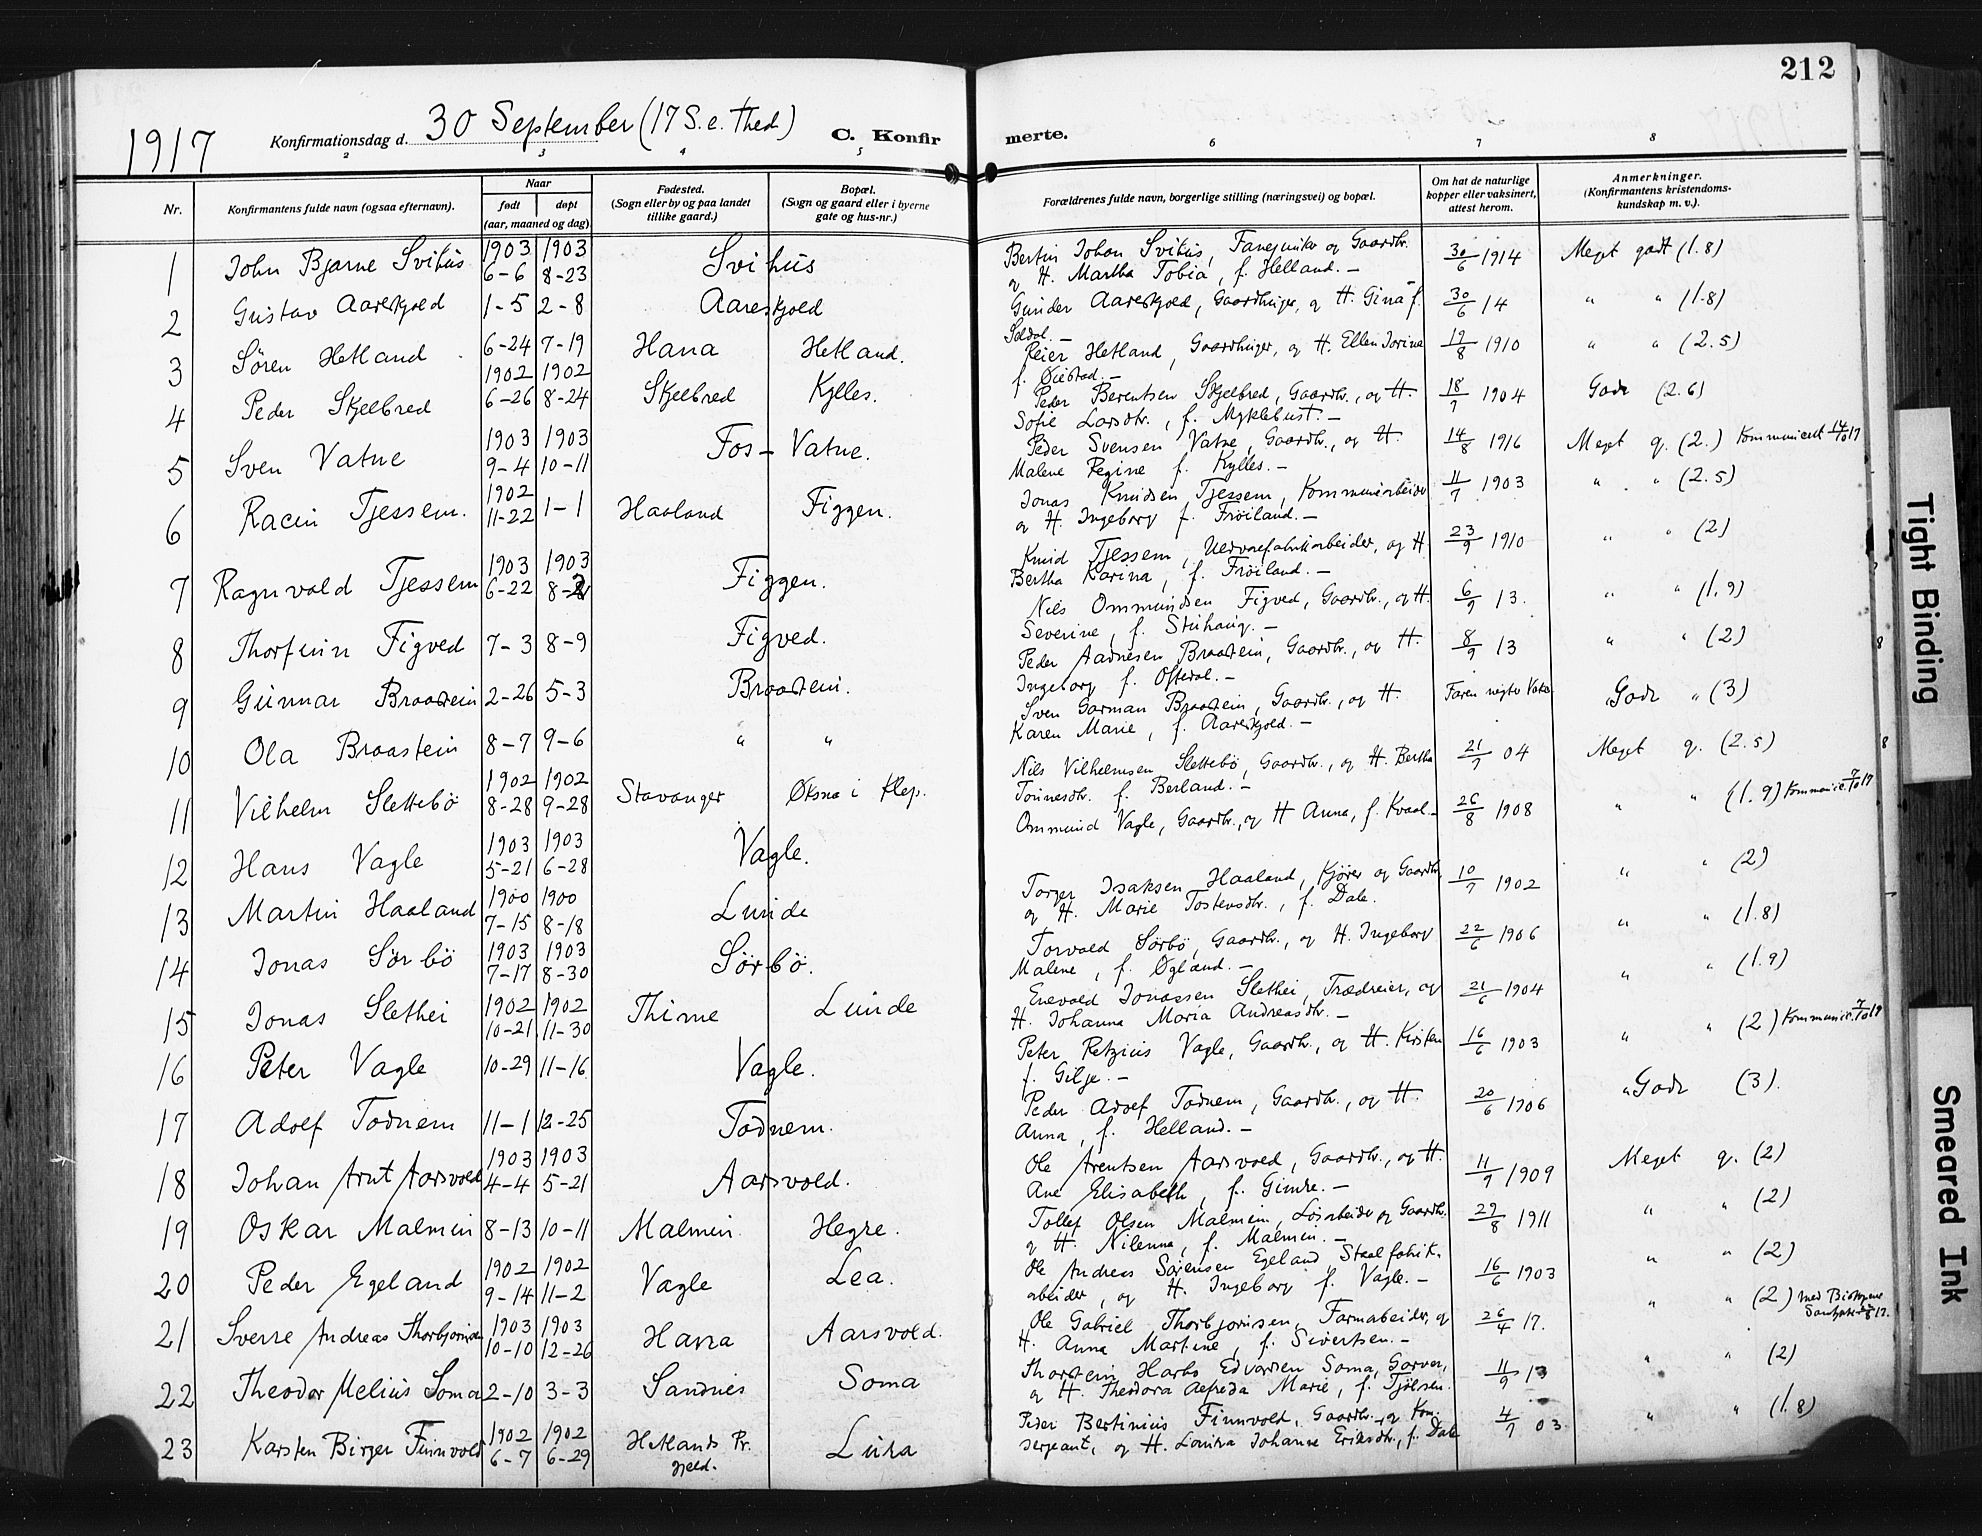 212
1917 Konfirmationsdag d. 30 September (17 S. e. Thed.) C. Konfir merte.
2 3 4 5 6 7 8
Nr.
Konfirmantens fulde navn (ogsaa efternavn).
Naar
født døpt
(aar, maaned og dag)
Fødested.
(Sogn eller by og paa landet
tillike gaard.)
Bopæl.
(Sogn og gaard eller i byerne
gate og hus-nr.)
Forældrenes fulde navn, borgerlige stilling (næringsvei) og bopæl.
Om hat de naturlige
kopper eller vaksinert,
attest herom.
Anmerkninger.
(Konfirmantens kristendoms-
kundskap m. v.).
1 John Bjarne Svihus 1903 6-6 1903 8-23 Svihus Bertin Johan Svihus, og Gaardbr. 30/6 1914 Meget godt (1.8)
og H. Martha Tobia, f. Helland. —
2 Gustav Aareskjold 1-5 2-8 Aareskjold Gunder Aareskjold, Gaardbruger, og H. Gina f. 30/6 14 " " (1.8)
Seldal. —
3 Søren Hetland 6-24 7-19 Hana Hetland. Peier Hetland, Gaardbruger, og H. Ellen Jorine 19/8 1910 " " (2.5)
f. Øiestad. —
4 Peder Skjelbred 1902 6-26 1902 8-24 Skjelbred Kylles. Peder Berentsen Skjelbred, Gaardbr., og H. 18/7 1904 Godt (2.6)
Sofie Larsdtr., f. Myklebust. —
5 Sven Vatne 1903 9-4 1903 10-11 Fos-Vatne. Peder Svensen Vatne, Gaardbr., og H. 14/8 1916 Meget g. (2.)
Malene Regine f. Kylles. —
6 Racin Tjessem. 1902 11-22 1-1 Haaland Figgen. Jonas Knudsen Tjessem, Kommunearbeider 11/7 1903 " " (2.5)
og H. Ingeborg f. Frøiland. —
7 Ragnvald Tjessem 1903 6-22 1903 Figgen. Knud Tjessem, Uldvarefabrikarbeider, og H 23/9 1910 " " (2)
Bertha Karina, f. Frøiland. —
8 Thorfinn Figved 7-3 8-9 Figved. Nils Ommundsen Figved, Gaardbr., og H. 6/9 13. " " (1.9)
Severine, f. Stuhaug. —
9 Gunnar Braastein 2-26 5-3 Braastein. Peder Aadnesen Braastein, Gaardbr., og H. 8/9 13 " " (2)
Ingeborg f. Oftedal. —
10 Ola Braastein 8-7 9-6 " " Sven Gorman Braastein, Gaardbr., og H. Godt " (3)
Karen Marie, f. Aareskjold. —
11 Vilhelm Slettebø 1902 8-28 1902 9-28 Stavanger Øksna i Klep. Nils Vilhelmsen Slettebø, Gaardbr., og H. Bertha 21/7 04 Meget g. (2.5)
Tønnesdtr. f. Berland. —
12 Hans Vagle 1903 5-21 1903 6-28 Vagle. Ommund Vagle, Gaardbr., og H Anna, f. Kvaal. — 26/8 1908 " " (1.9)
13 Martin Haaland 1900 7-15 1900 8-18 Lunde Torger Isaksen Haaland, Kjører og Gaardbr. 10/7 1902 " " (2)
og H. Marie Tostensdtr., f. Dale.
14 Jonas Sørbø 1903 7-17 1903 8-30 Sørbø. Torvald Sørbø, Gaardbr., og H. Ingeborg 22/6 1906 " " (1.8)
Malene, f. Øgland. —
15 Jonas Slethei 1902 10-21 1902 11-30 Thime Lunde Enevald Jonassen Slethei, Trædreier, og 21/6 1904 " " (1.9)
H. Johanna Maria Andreasdtr. —
16 Peter Vagle 10-29 11-16 Vagle. Peter Retzius Vagle, Gaardbr., og H. Kirsten 16/6 1903 " " (2)
f. Gilje. —
17 Adolf Todnem 11-1 12-25 Todnem. Peder Adolf Todnem, Gaardbr., og H. 20/6 1906 " Godt (3).
Anna, f. Helland. —
18 Johan Arnt Aarsvold 1903 4-4 1903 5-21 Aarsvold. Ole Arentsen Aarsvold, Gaardbr., og H. 11/9 1909 Meget g. (2)
Ane Elisabeth, f. Gimre. —
19 Oskar Malmin 8-13 10-11 Malmin Hegre. Tollef Olsen Malmin, Løsarbeider og Gaardbr. 29/8 1911 " " (2)
og H. Nilenna, f. Malmin. —
20 Peder Egeland 1902 9-14 1902 11-2 Vagle Lea. Ole Andreas Sørensen Egeland, Staalfabrik- 16/6 1903 " " (2)
arbeider, og H. Ingeborg f. Vagle. —
21 Sverre Andreas Thorbjørnsen 1903 10-10 1903 12-26 Hana Aarsvold. Ole Gabriel Thorbjørnsen, Farmarbeider, og 26/4 17. " " (2) med
H. Anna Martine, f. Sivertsen. —
22 Theodor Melius Soma 2-10 3-3 Sandnes Soma Thorstein Harbo Edvardsen Soma, Garver, 11/9 13 " " (2)
og H. Theodora Alfreda Marie, f. Tjølsen.
23 Karsten Birger Finnvold 1902 6-7 1902 6-29 Hetlands Pr. gjeld. Lura Peder Bertinius Finnvold, Gaardbr. og Kom. 4/7 03. " " (1.8)
sergeant, og H. Laura Johanne Eriksdtr., f. Dale
Tight Binding
Smeared Ink